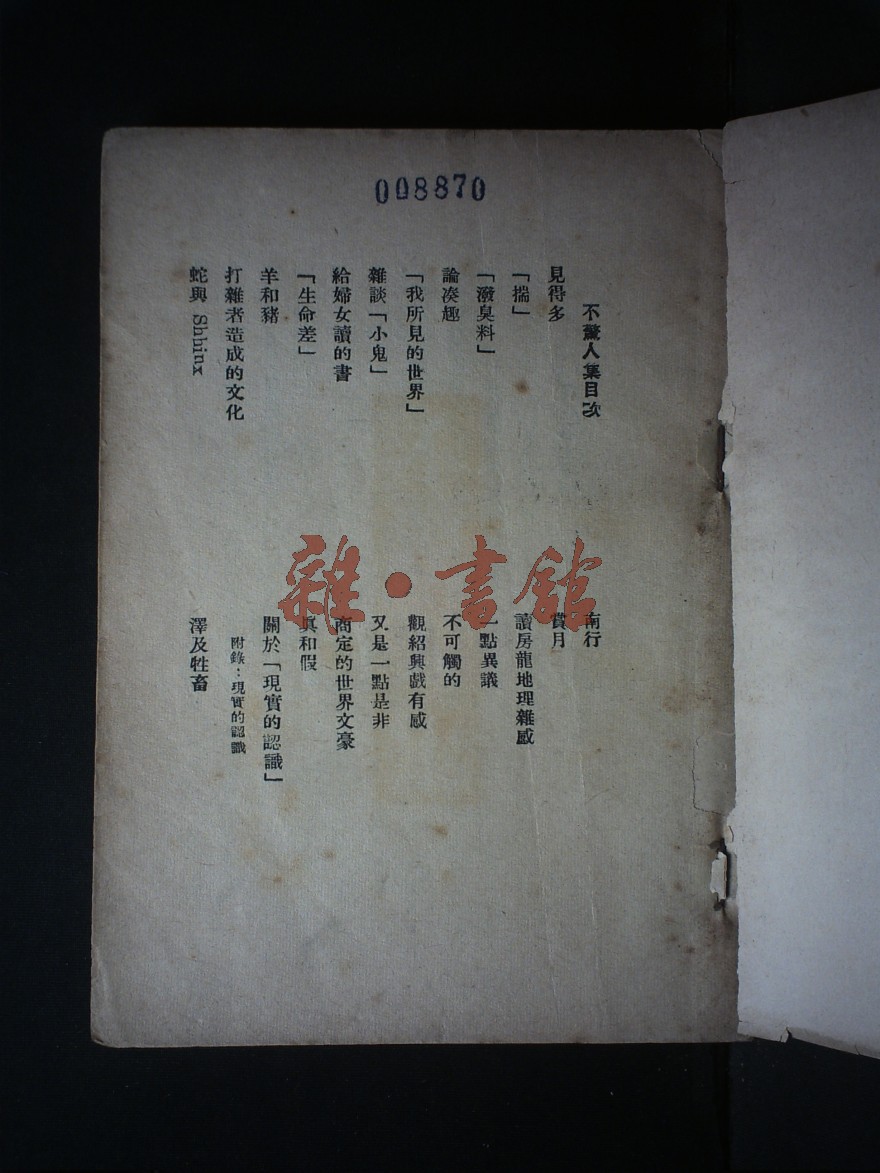 008870
不驚人集目次
見得多
「揣」
「潑臭料」
論湊趣
「我所見的世界」
雜談「小鬼」
給婦女讀的書
「生命差」
羊和豬
打雜者造成的文化
蛇與 Shhinx
南行
賞月
讀房龍地理雜感
一點異議
不可觸的
觀紹興戲有感
又是一點是非
商定的世界文豪
眞和假
關於「現實的認識」
附錄：現實的認識
澤及牲畜
雜·書館